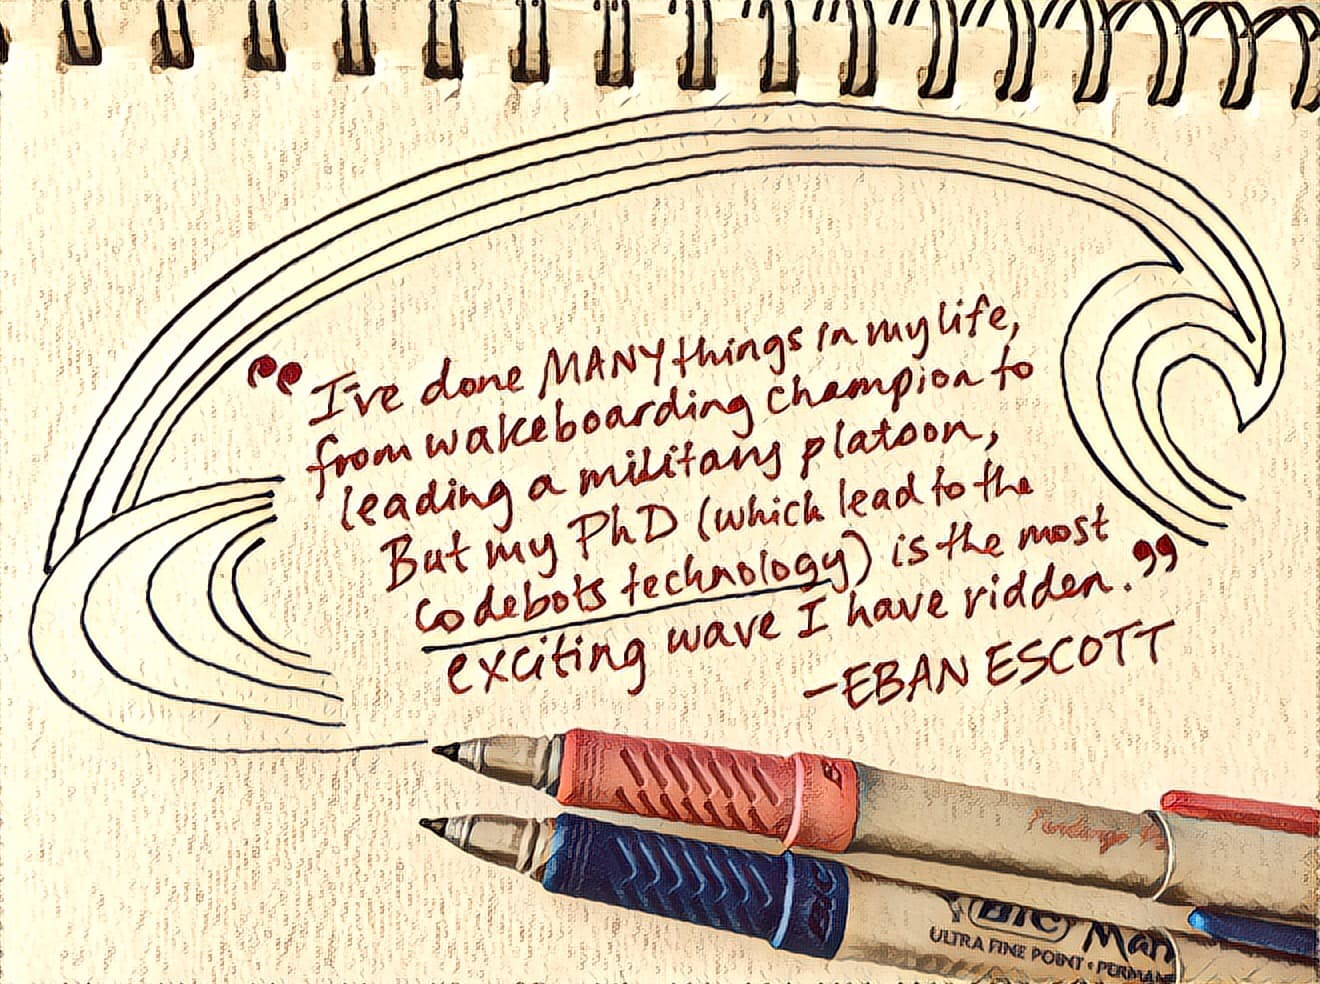 “I've done MANY things in my life,
from wakeboarding champion to
leading a military platoon,
But my PhD (which lead to the
codebots technology) is the most
exciting wave I have ridden.”
—EBAN ESCOTT
BIC
BIC Mar
ULTRA FINE POINT • PERMAN